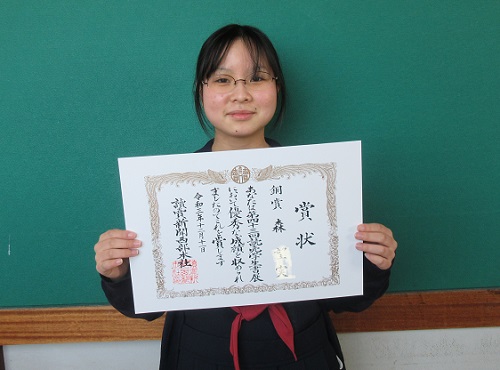 賞状
銅賞 森
あなたは第四十三回
において優秀な成績を収められ
ましたのでこれを賞します
令和三年十二月十二日
讀賣新聞西部本社